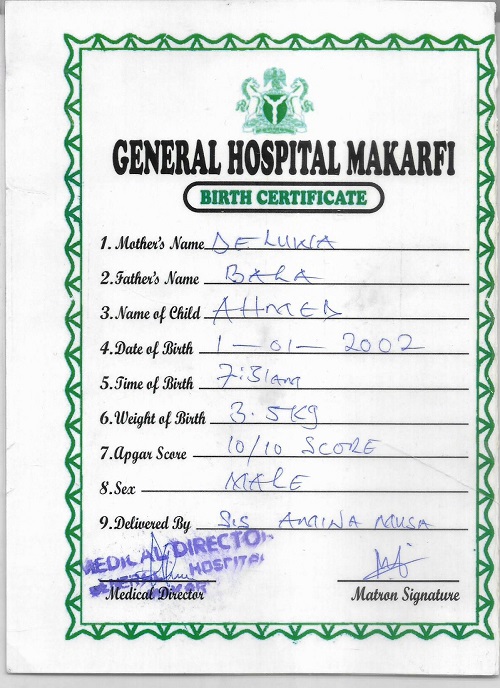 GENERAL HOSPITAL MAKARFI
BIRTH CERTIFICATE
1. Mother's Name DELUWA
2. Father's Name BALA
3. Name of Child AHMED
4. Date of Birth 1-01-2002
5. Time of Birth 7:31am
6. Weight of Birth 3.5kg
7. Apgar Score 10/10 SCORE
8. Sex MALE
9. Delivered By Sis AMINA MUSA
MEDICAL DIRECTOR
HOSPITAL
Medical Director
Matron Signature